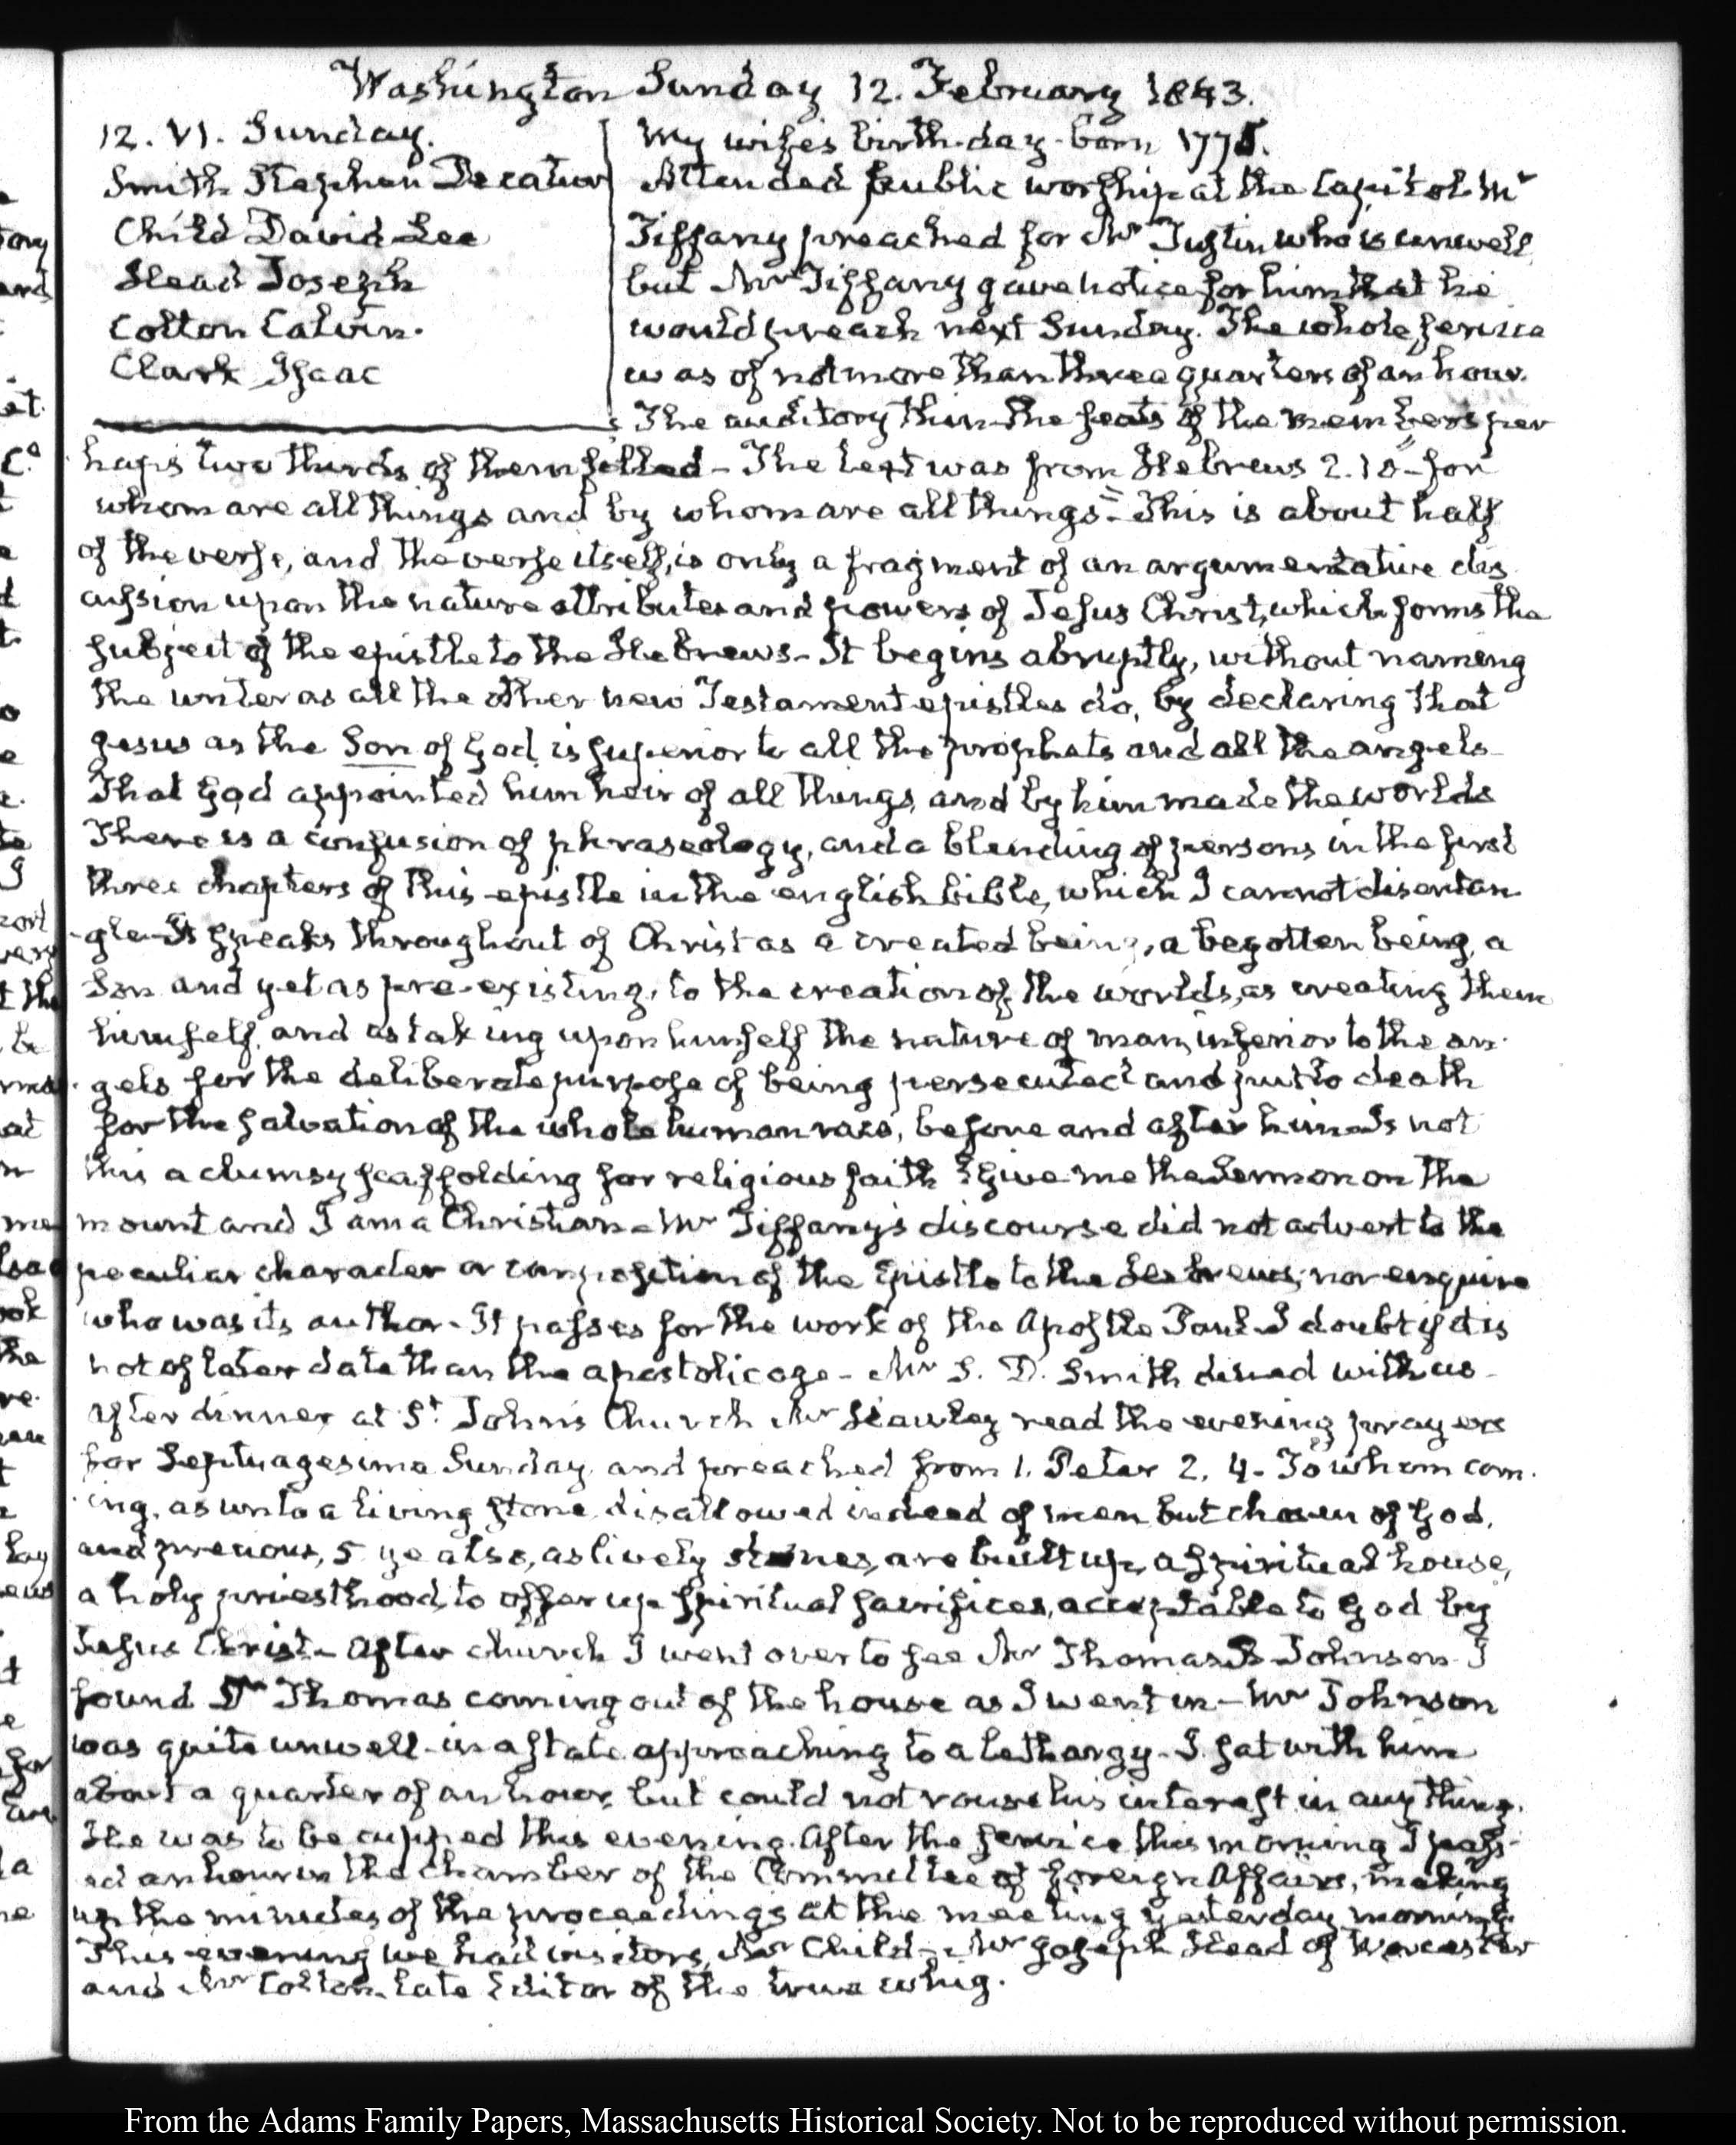 Washington Sunday 12. February 1843.
12. VI. Sunday.
Smith Stephen Decatur
Child David Lee
Head Joseph
Colton Calvin.
Clark Isaac
My wife's birth-day- born 1775.
Attended public worship at the Capitol. Mr
Tiffany preached for Mr Tustin who is unwell
but Mr Tiffany gave notice for him that he
would preach next Sunday. The whole service
was of not more than three quarters of an hour.
The auditory thin- the seats of the members per
haps two thirds of them filled- The text was from Hebrews 2.10 "for
whom are all things and by whom are all things"- This is about half
of the verse, and the verse itself, is only a fragment of an argumentative dis
cussion upon the nature attributes and powers of Jesus Christ, which forms the
subject of the epistle to the Hebrews- It begins abruptly, without naming
the writer as all the other new Testament epistles do, by declaring that
Jesus as the Son of God is superior to all the prophets and all the angels-
That God appointed him heir of all things, and by him made the worlds
There is a confusion of phraseology, and a blending of persons in the first
three chapters of this epistle in the english bible, which I cannot disentan
gle- It speaks throughout of Christ as a created being, a begotten being, a
Son and yet as pre-existing, to the creation of the worlds, as creating them
himself, and as taking upon himself the nature of man, inferior to the an-
gels for the deliberate purpose of being persecuted and put to death
for the salvation of the whole human race, before and after him- Is not
this a clumsy scaffolding for religious faith? Give me the Sermon on the
mount and I am a Christian- Mr Tiffany's discourse did not advert to the
peculiar character or composition of the Epistle to the Hebrews, nor enquire
who was its author- It passes for the work of the Apostle Paul- I doubt if it is
not of later date than the apostolic age- Mr S. D. Smith dined with us-
After dinner, at St. John's Church Mr Hawley read the evening prayers
for Septuagesima Sunday, and preached from 1. Peter 2. 4. To whom com-
ing, as unto a living stone, disallowed indeed of men but chosen of God,
and precious, 5 ye also, as lively stones, are built up, a spiritual house,
a holy priesthood, to offer up spiritual sacrifices, acceptable to God by
Jesus Christ- After church I went over to see Mr Thomas Johnson- I
found Dr Thomas coming out of the house as I went in- Mr Johnson
was quite unwell- in a state approaching to a lethargy- I sat with him
about a quarter of an hour, but could not rouse his interest in any thing.
He was to be cupped this evening. After the service this morning I pass-
ed an hour in the chamber of the Committee of Foreign Affairs, making
up the minutes of the proceedings at the meeting yesterday morning.
This evening we had visitors, Mr Child- Mr Joseph Head of Worcester
and Mr Colton- late Editor of the true whig.
From the Adams Family Papers, Massachusetts Historical Society. Not to be reproduced without permission.